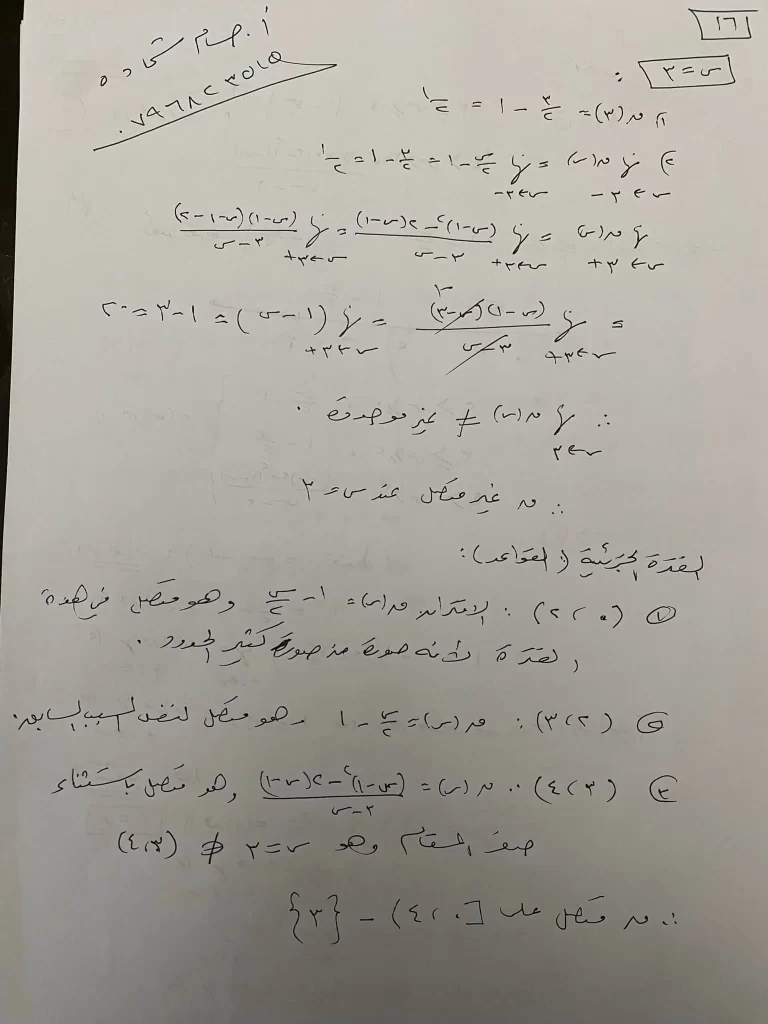 أ. حسام شحاده
٠٧٩٦٨٢٣٥١٥
١٦١
س = ٣ :
١) ق(٣) = ٣/٢ − ١ = ١/٢
٢) نها س←٣− ق(س) = نها س←٣− س/٢ − ١ = ٣/٢ − ١ = ١/٢
نها س←٣+ ق(س) = نها س←٣+ ((س−١)² − ٢(س−١))/(٣−س) = نها س←٣+ (س−١)(س−١−٢)/(٣−س)
= نها س←٣+ (س−١)(س−٣)/(٣−س) = نها س←٣+ (١−س) = ١−٣ = −٢
∴ نها س←٣ ق(س) ≠ غير موجودة .
∴ ق غير متصل عند س = ٣
الفترة الجزئية (القواعد) :
① (٠ ، ٢) : الاقتران ق(س) = ١ − س/٢ وهو متصل في هذه
الفترة لأنه صورة من صور كثير الحدود .
② (٢ ، ٣) : ق(س) = س/٢ − ١ وهو متصل لنفس السبب السابق .
③ (٣ ، ٤) : ق(س) = ((س−١)² − ٢(س−١))/(٣−س) وهو متصل باستثناء
صفر المقام وهو س = ٣ ∉ (٣ ، ٤)
∴ ق متصل على [٠ ، ٤) − {٣}